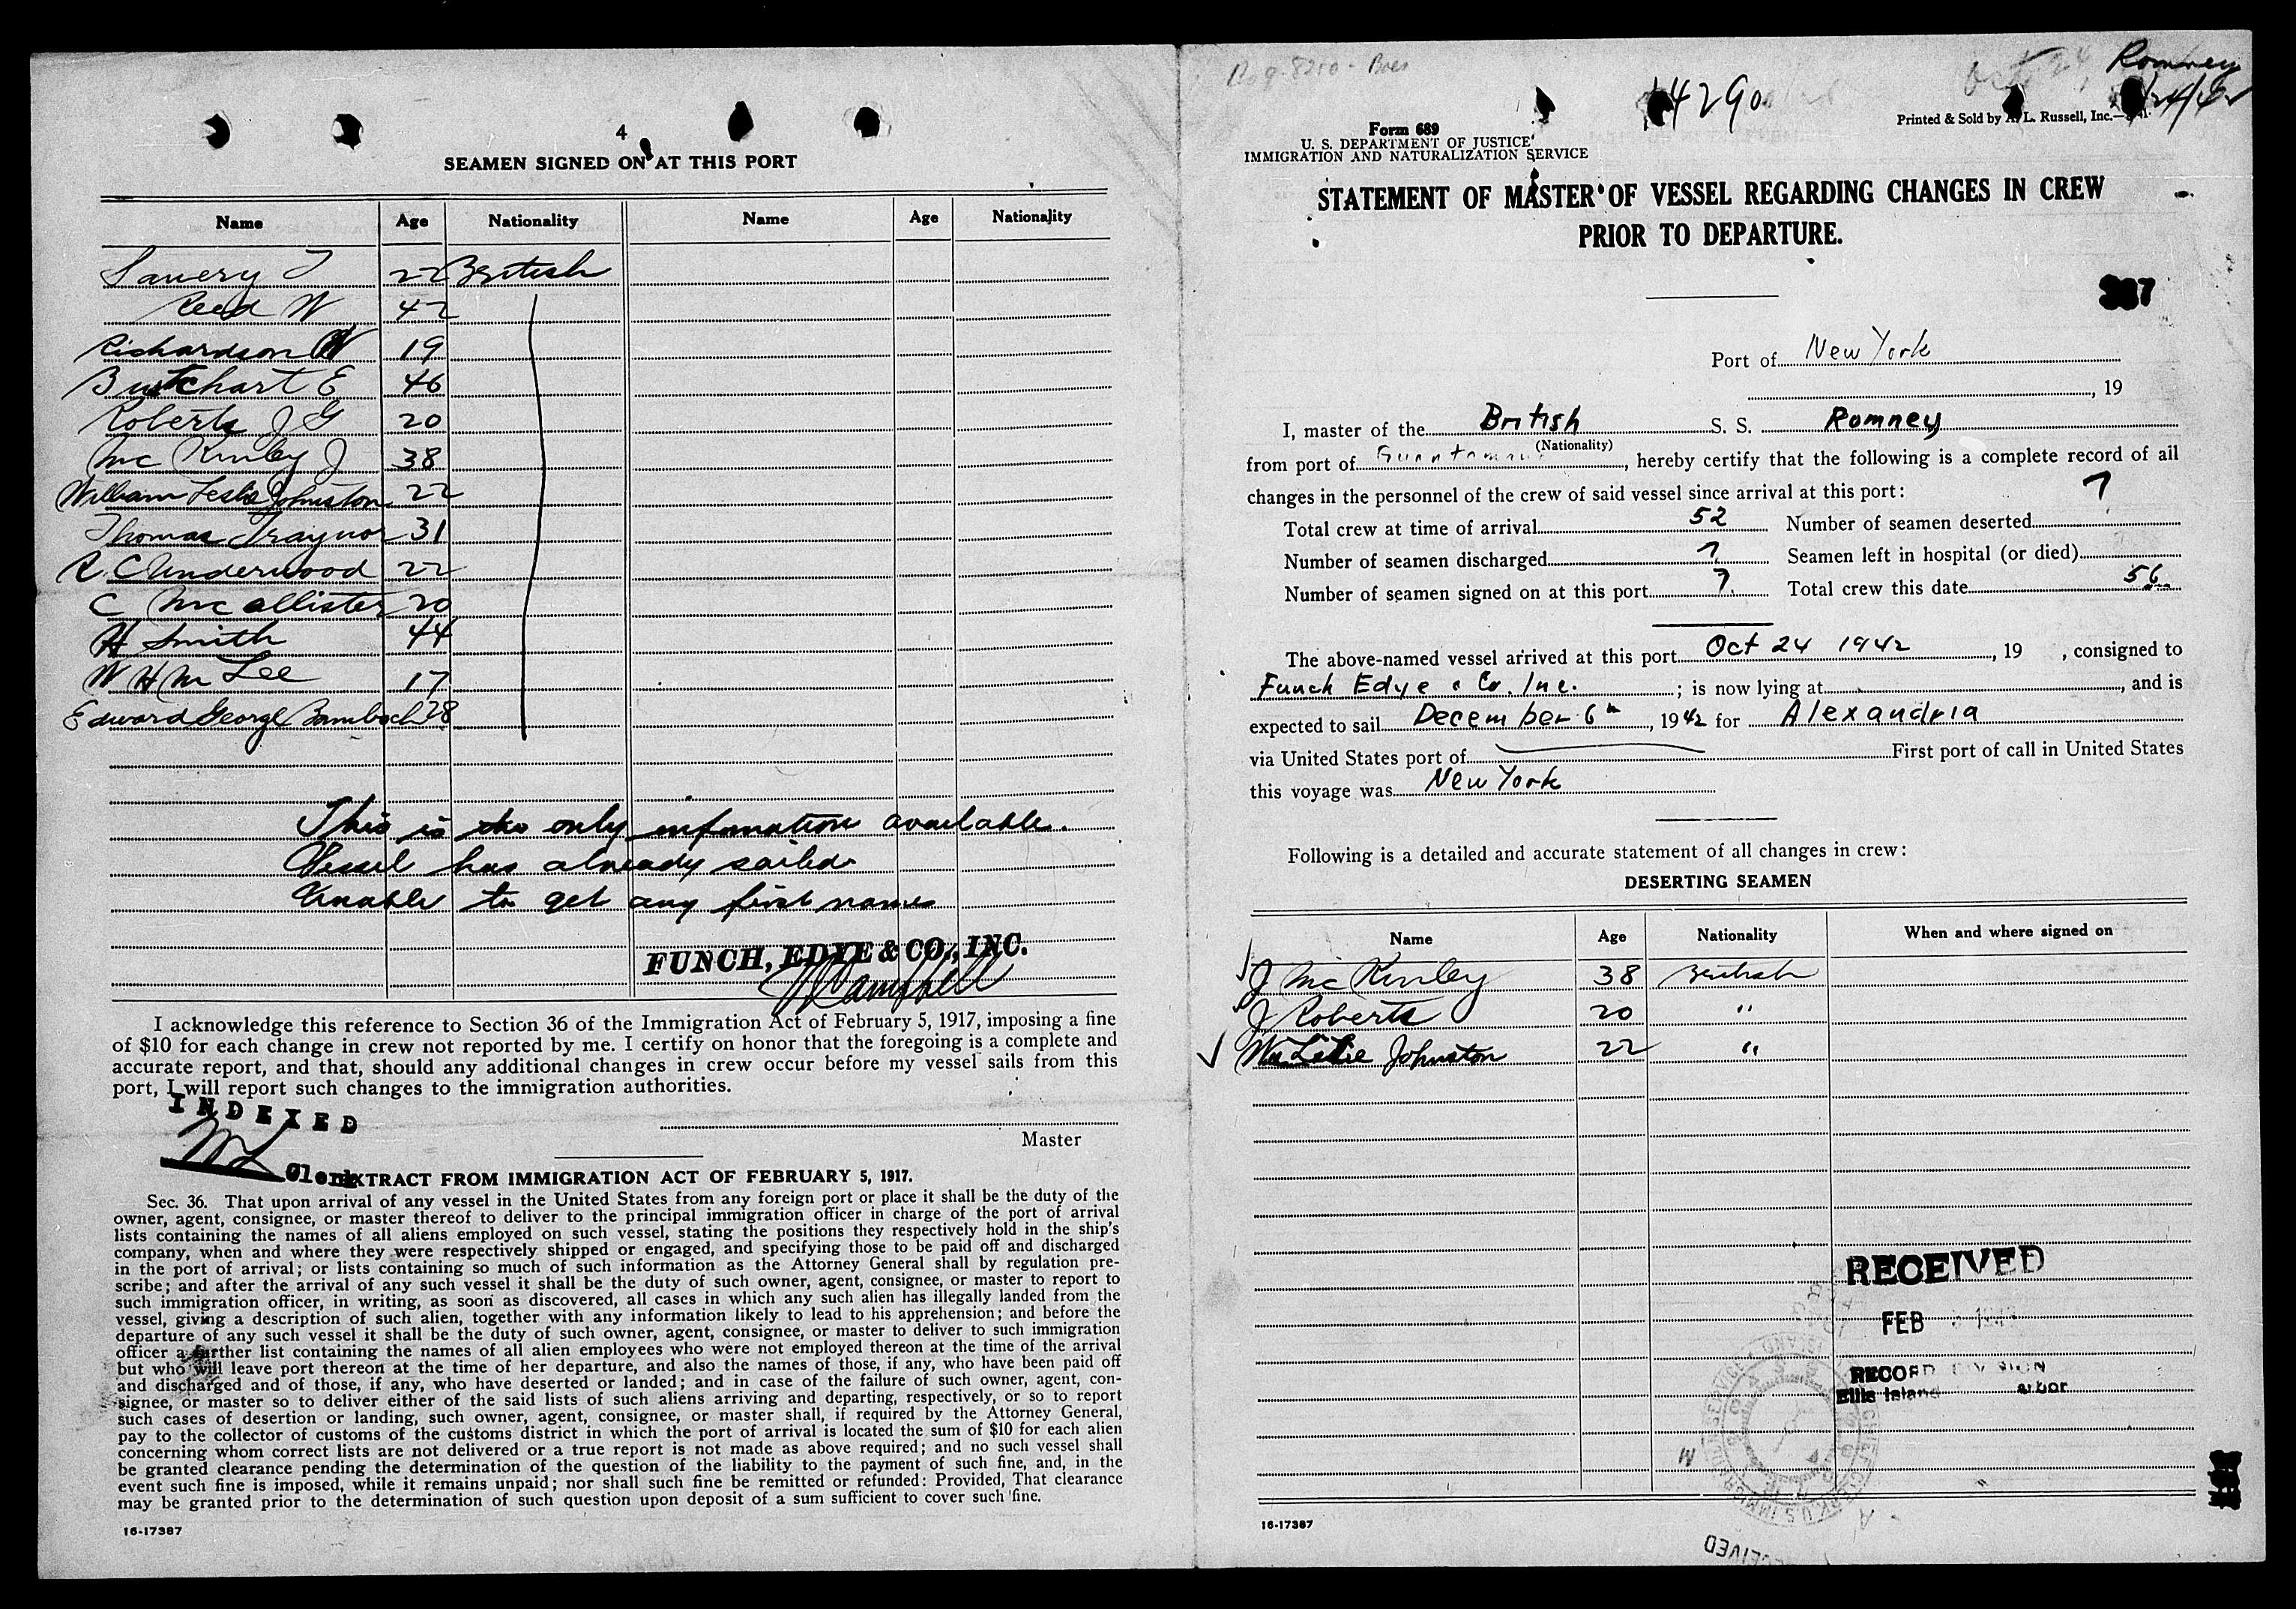 4
SEAMEN SIGNED ON AT THIS PORT
Name Age Nationality Name Age Nationality
Lavery J 22 British
Reed W 42
Richardson W 19
Butchart E 46
Roberts J G 20
McKinley J 38
William Leslie Johnston 22
Thomas Traynor 31
R. C Underwood 22
C McAllister 20
H Smith 44
W H M Lee 17
Edward George Bambach 28
This is the only information available.
Vessel has already sailed
Unable to get any first names
FUNCH, EDYE & CO., INC.
Campbell
I acknowledge this reference to Section 36 of the Immigration Act of February 5, 1917, imposing a fine
of $10 for each change in crew not reported by me. I certify on honor that the foregoing is a complete and
accurate report, and that, should any additional changes in crew occur before my vessel sails from this
port, I will report such changes to the immigration authorities.
INDEXED
Master
Clerk
EXTRACT FROM IMMIGRATION ACT OF FEBRUARY 5, 1917.
Sec. 36. That upon arrival of any vessel in the United States from any foreign port or place it shall be the duty of the
owner, agent, consignee, or master thereof to deliver to the principal immigration officer in charge of the port of arrival
lists containing the names of all aliens employed on such vessel, stating the positions they respectively hold in the ship's
company, when and where they were respectively shipped or engaged, and specifying those to be paid off and discharged
in the port of arrival; or lists containing so much of such information as the Attorney General shall by regulation pre-
scribe; and after the arrival of any such vessel it shall be the duty of such owner, agent, consignee, or master to report to
such immigration officer, in writing, as soon as discovered, all cases in which any such alien has illegally landed from the
vessel, giving a description of such alien, together with any information likely to lead to his apprehension; and before the
departure of any such vessel it shall be the duty of such owner, agent, consignee, or master to deliver to such immigration
officer a further list containing the names of all alien employees who were not employed thereon at the time of the arrival
but who will leave port thereon at the time of her departure, and also the names of those, if any, who have been paid off
and discharged and of those, if any, who have deserted or landed; and in case of the failure of such owner, agent, con-
signee, or master so to deliver either of the said lists of such aliens arriving and departing, respectively, or so to report
such cases of desertion or landing, such owner, agent, consignee, or master shall, if required by the Attorney General,
pay to the collector of customs of the customs district in which the port of arrival is located the sum of $10 for each alien
concerning whom correct lists are not delivered or a true report is not made as above required; and no such vessel shall
be granted clearance pending the determination of the question of the liability to the payment of such fine, and, in the
event such fine is imposed, while it remains unpaid; nor shall such fine be remitted or refunded: Provided, That clearance
may be granted prior to the determination of such question upon deposit of a sum sufficient to cover such fine.
16-17387
Romney
14290
Form 689
Printed & Sold by L. Russell, Inc.
U. S. DEPARTMENT OF JUSTICE
IMMIGRATION AND NATURALIZATION SERVICE
STATEMENT OF MASTER OF VESSEL REGARDING CHANGES IN CREW
PRIOR TO DEPARTURE.
Port of New York
, 19
I, master of the British S. S. Romney
(Nationality)
from port of , hereby certify that the following is a complete record of all
changes in the personnel of the crew of said vessel since arrival at this port:
Total crew at time of arrival 52 Number of seamen deserted ?
Number of seamen discharged ? Seamen left in hospital (or died)
Number of seamen signed on at this port ? Total crew this date 56
The above-named vessel arrived at this port Oct 24 1942, 19 , consigned to
Funch Edye & Co. Inc. ; is now lying at , and is
expected to sail December 6th, 1942 for Alexandria
via United States port of First port of call in United States
this voyage was New York
Following is a detailed and accurate statement of all changes in crew:
DESERTING SEAMEN
Name Age Nationality When and where signed on
J McKinley 38 British
J Roberts 20 "
Wm Leslie Johnston 22 "
RECEIVED
FEB
RECORD DIVISION
Ellis Island
16-17387